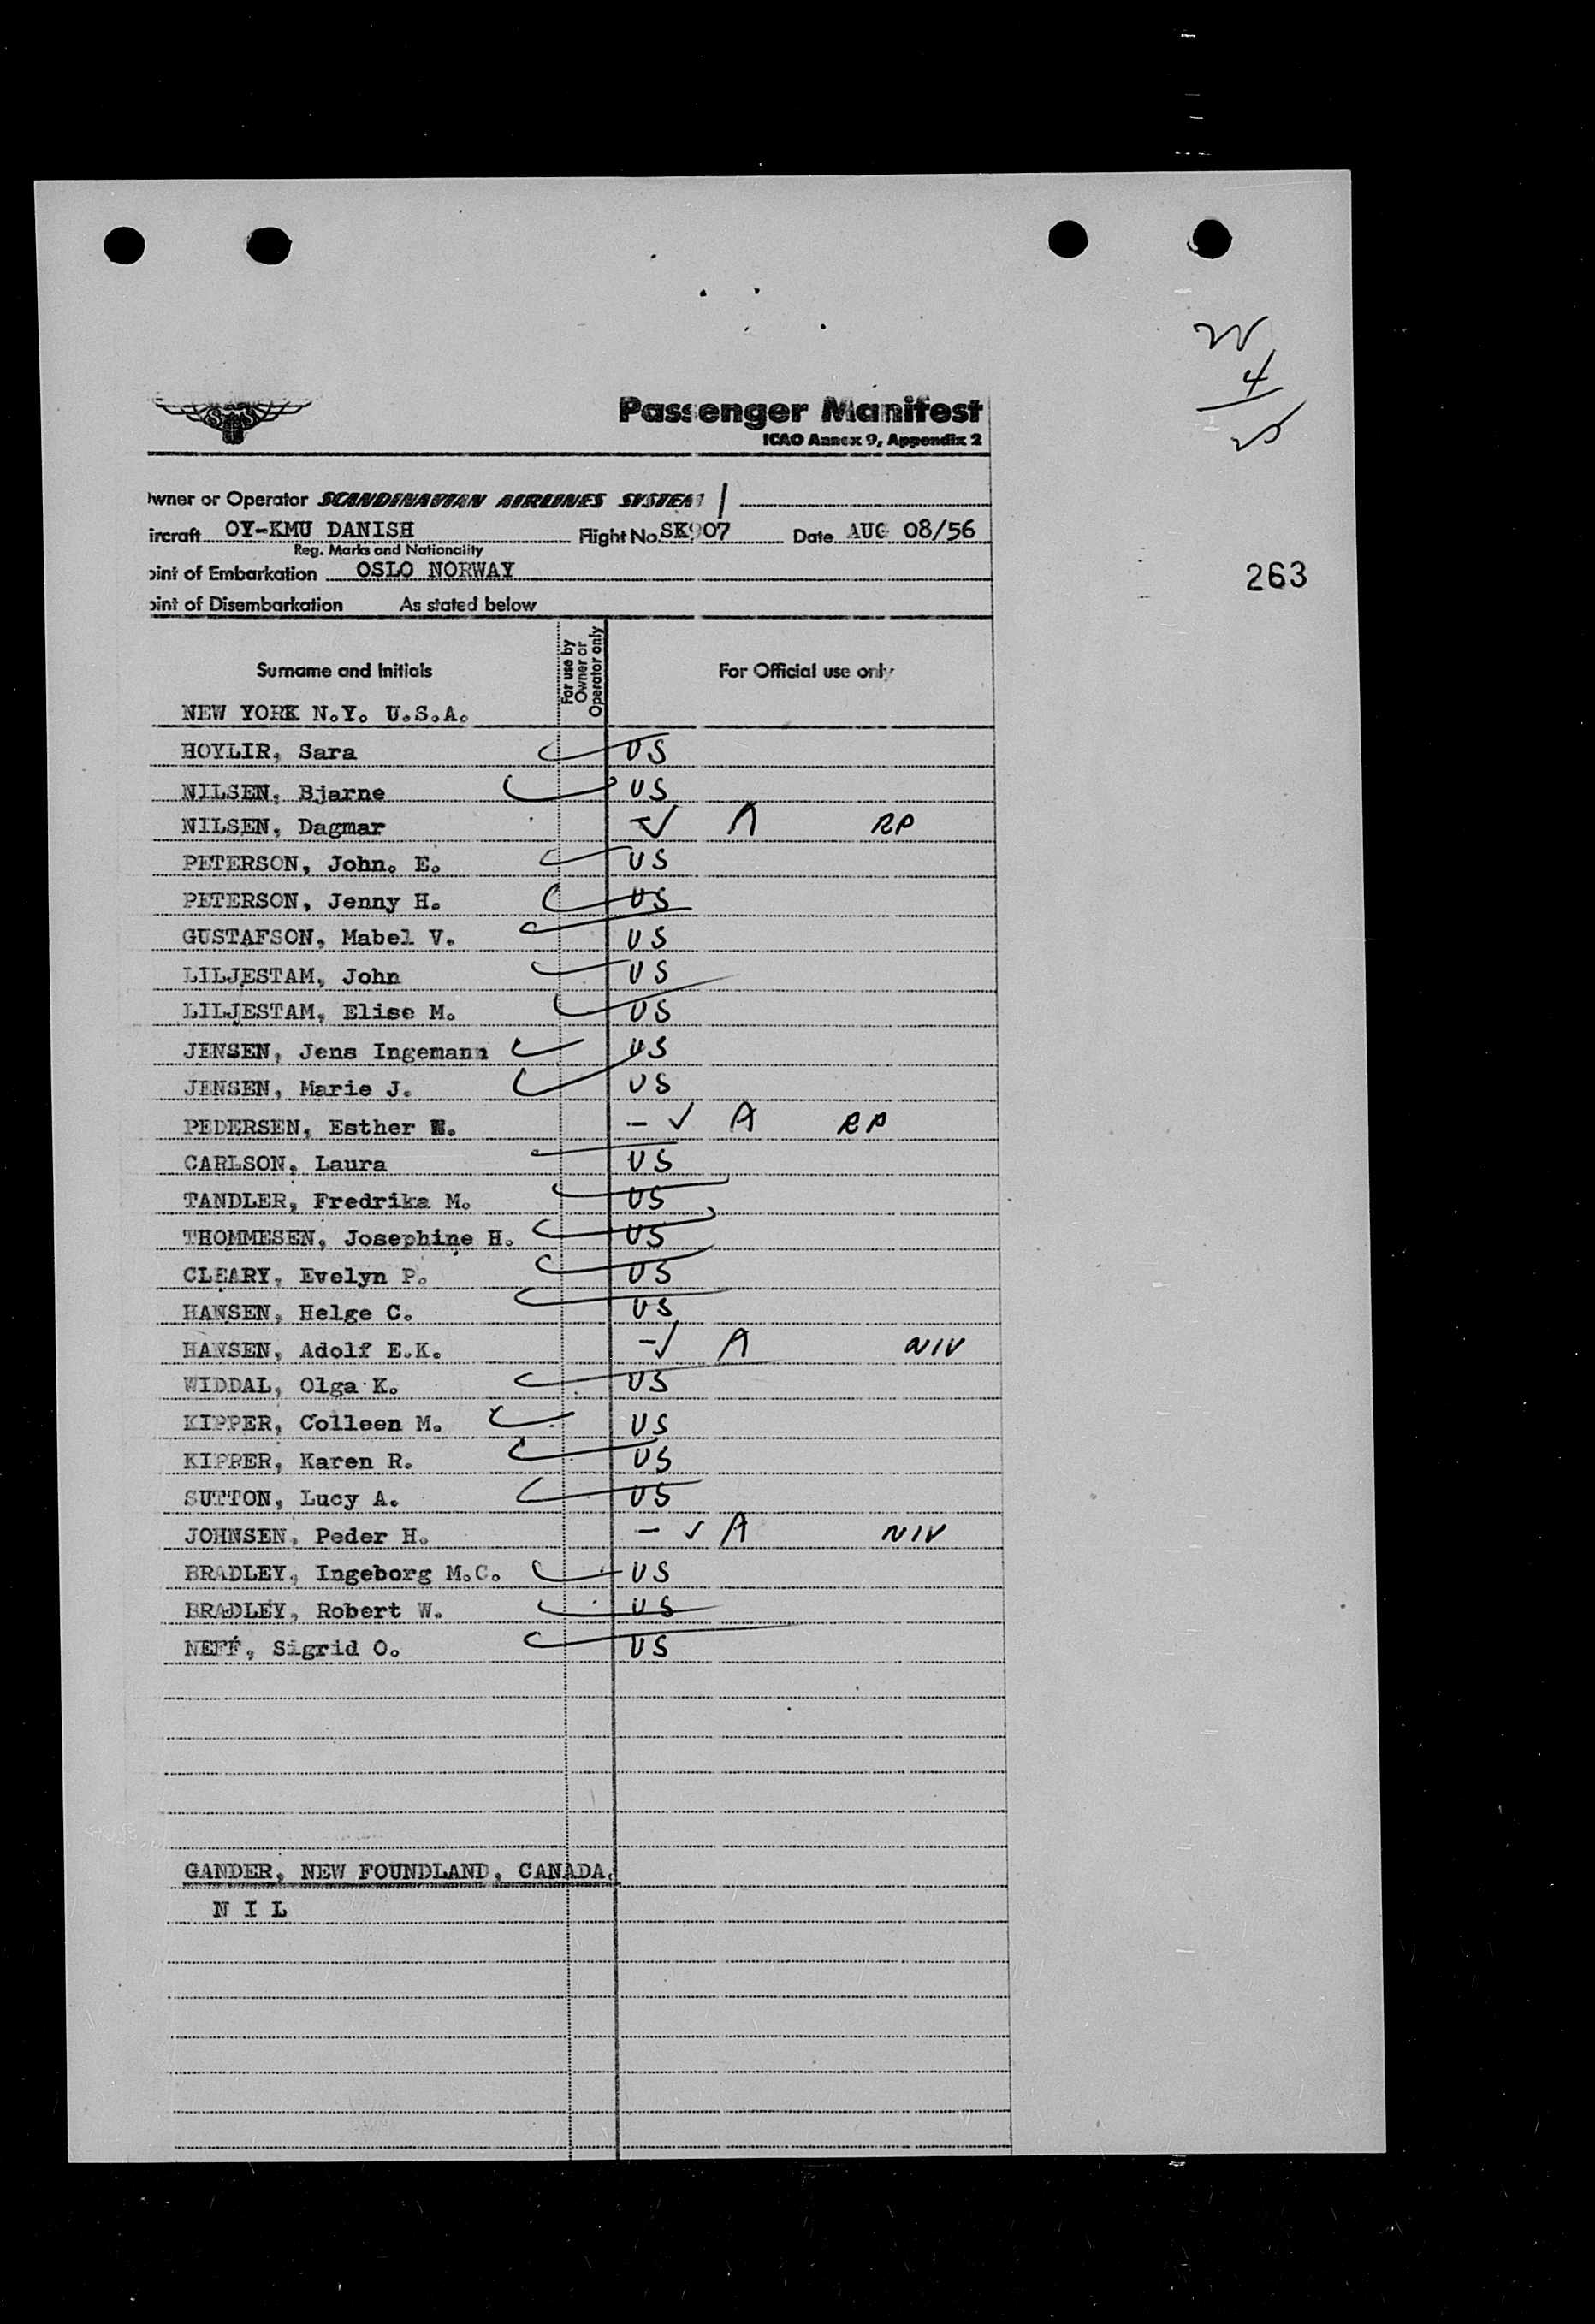 SAS
Passenger Manifest
ICAO Annex 9, Appendix 2
wner or Operator SCANDINAVIAN AIRLINES SYSTEM
ircraft OY-KMU DANISH Flight No. SK907 Date AUG 08/56
Reg. Marks and Nationality
oint of Embarkation OSLO NORWAY
263
oint of Disembarkation As stated below
Surname and Initials For use by Owner or Operator only For Official use only
NEW YORK N.Y. U.S.A.
HOYLIR, Sara US
NILSEN, Bjarne US
NILSEN, Dagmar A RP
PETERSON, John. E. US
PETERSON, Jenny H. US
GUSTAFSON, Mabel V. US
LILJESTAM, John US
LILJESTAM, Elise M. US
JENSEN, Jens Ingemann US
JENSEN, Marie J. US
PEDERSEN, Esther - ✓ A RP
CARLSON, Laura US
TANDLER, Fredrika M. US
THOMMESEN, Josephine H. US
CLEARY, Evelyn P. US
HANSEN, Helge C. US
HANSEN, Adolf E.K. -✓ A NIV
WIDDAL, Olga K. US
KIPPER, Colleen M. US
KIPPER, Karen R. US
SUTTON, Lucy A. US
JOHNSEN, Peder H. - ✓ A NIV
BRADLEY, Ingeborg M.C. US
BRADLEY, Robert W. US
NEFF, Sigrid O. US
GANDER, NEW FOUNDLAND, CANADA.
N I L